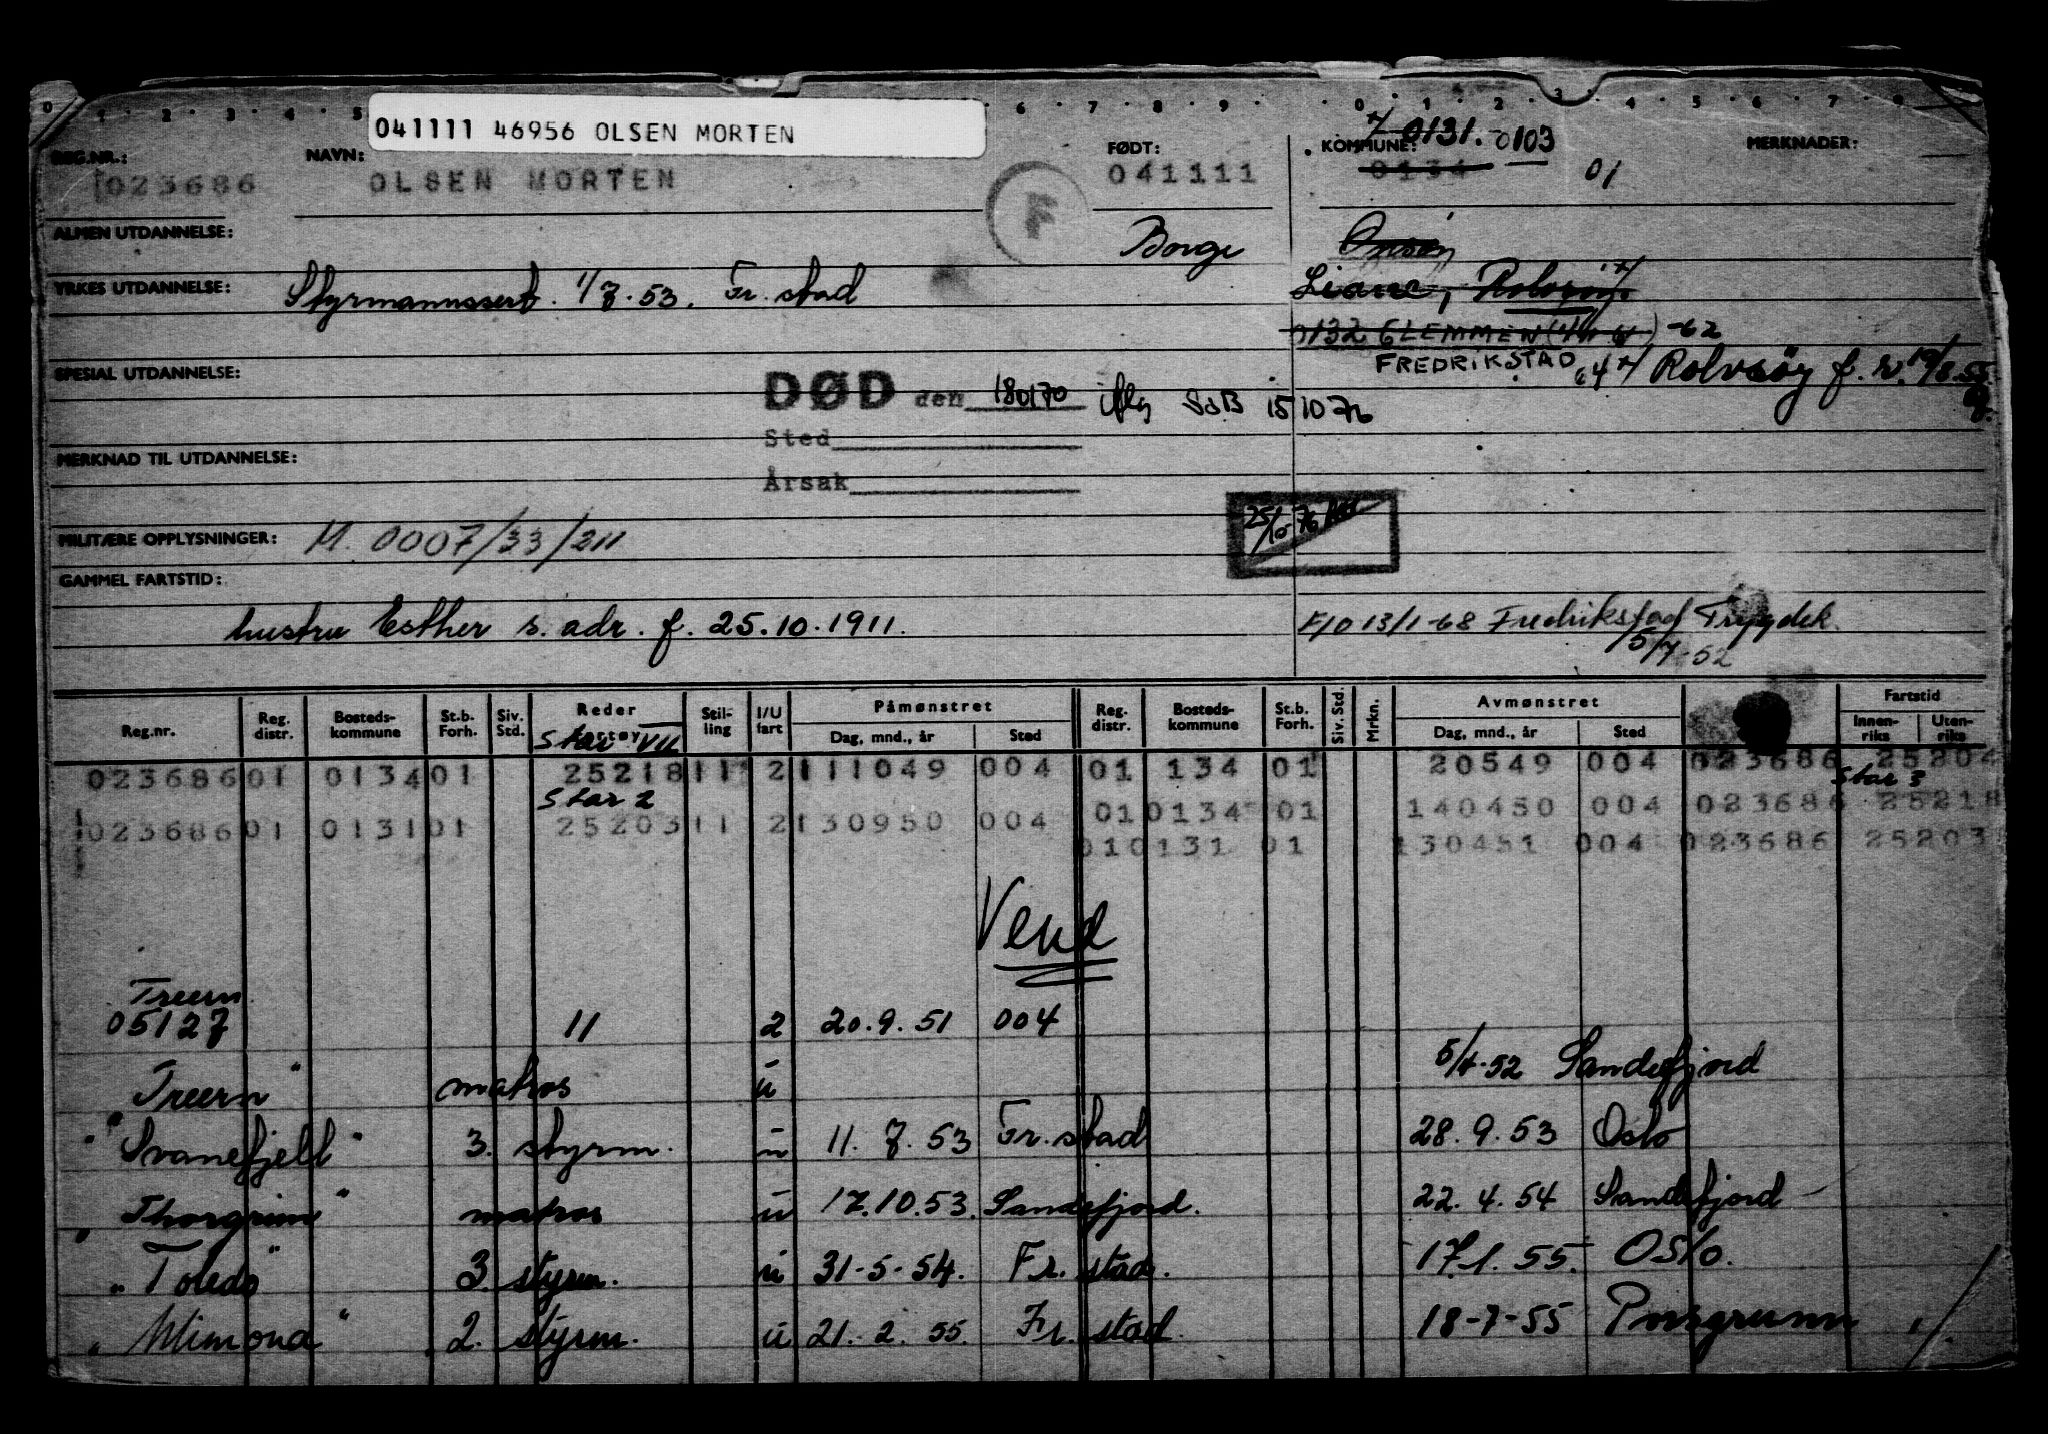 0 1 2 3 4 5 6 7 8 9 0 1 2 3 4 5 6 7 8
041111 46956 OLSEN MORTEN
REG.NR.: NAVN: FØDT: KOMMUNE: 0131. 0103 MERKNADER:
023686 OLSEN MORTEN F 041111 0134 01
ALMEN UTDANNELSE: Borge Onsøy
YRKES UTDANNELSE: Styrmannssert. 1/7.53. Fr.stad Liane, Rolvsøy
0132 GLEMMEN -62
SPESIAL UTDANNELSE: FREDRIKSTAD Rolvsøy f. v. 19/8.55
DØD den 180170 iflg SSB 151076
Sted
MERKNAD TIL UTDANNELSE:
Årsak
25/10 76
MILITÆRE OPPLYSNINGER: M. 0007/33/211
GAMMEL FARTSTID:
hustru Esther s. adr. f. 25.10.1911. F/O 13/1-68 Fredrikstad Trygdek.
15/7-52
Reg.nr. Reg. distr. Bosteds-kommune St.b. Forh. Siv. Std. Reder Stil-ling I/U fart Påmønstret Dag, mnd., år Sted Reg. distr. Bosteds-kommune St.b. Forh. Siv. Std. Mrkn. Avmønstret Dag, mnd., år Sted Fartstid Innen-riks Uten-riks
Star VII
023686 01 0134 01 25218 11 2 111049 004 01 134 01 20549 004 023686 25204
Star 2 Star 3
01 0134 01 140450 004 023686 25218
023686 01 0131 01 25203 11 2 130950 004
01 0131 01 130451 004 023686 25203
Vend
Treern
05127 11 2 20.9.51 004
Treern " matros u 5/4-52 Sandefjord
" Svanefjell " 3. styrm. u 11.7.53 Fr.stad 28.9.53 Oslo
" Thorgrim " matros u 17.10.53. Sandefjord. 22.4.54 Sandefjord -
" Toledo " 3. styrm. u 31-5-54. Fr. stad. 17.1.55. Oslo.
" Mimona " 2. styrm. u 21.2.55. Fr. stad. 18-7-55 Porsgrunn